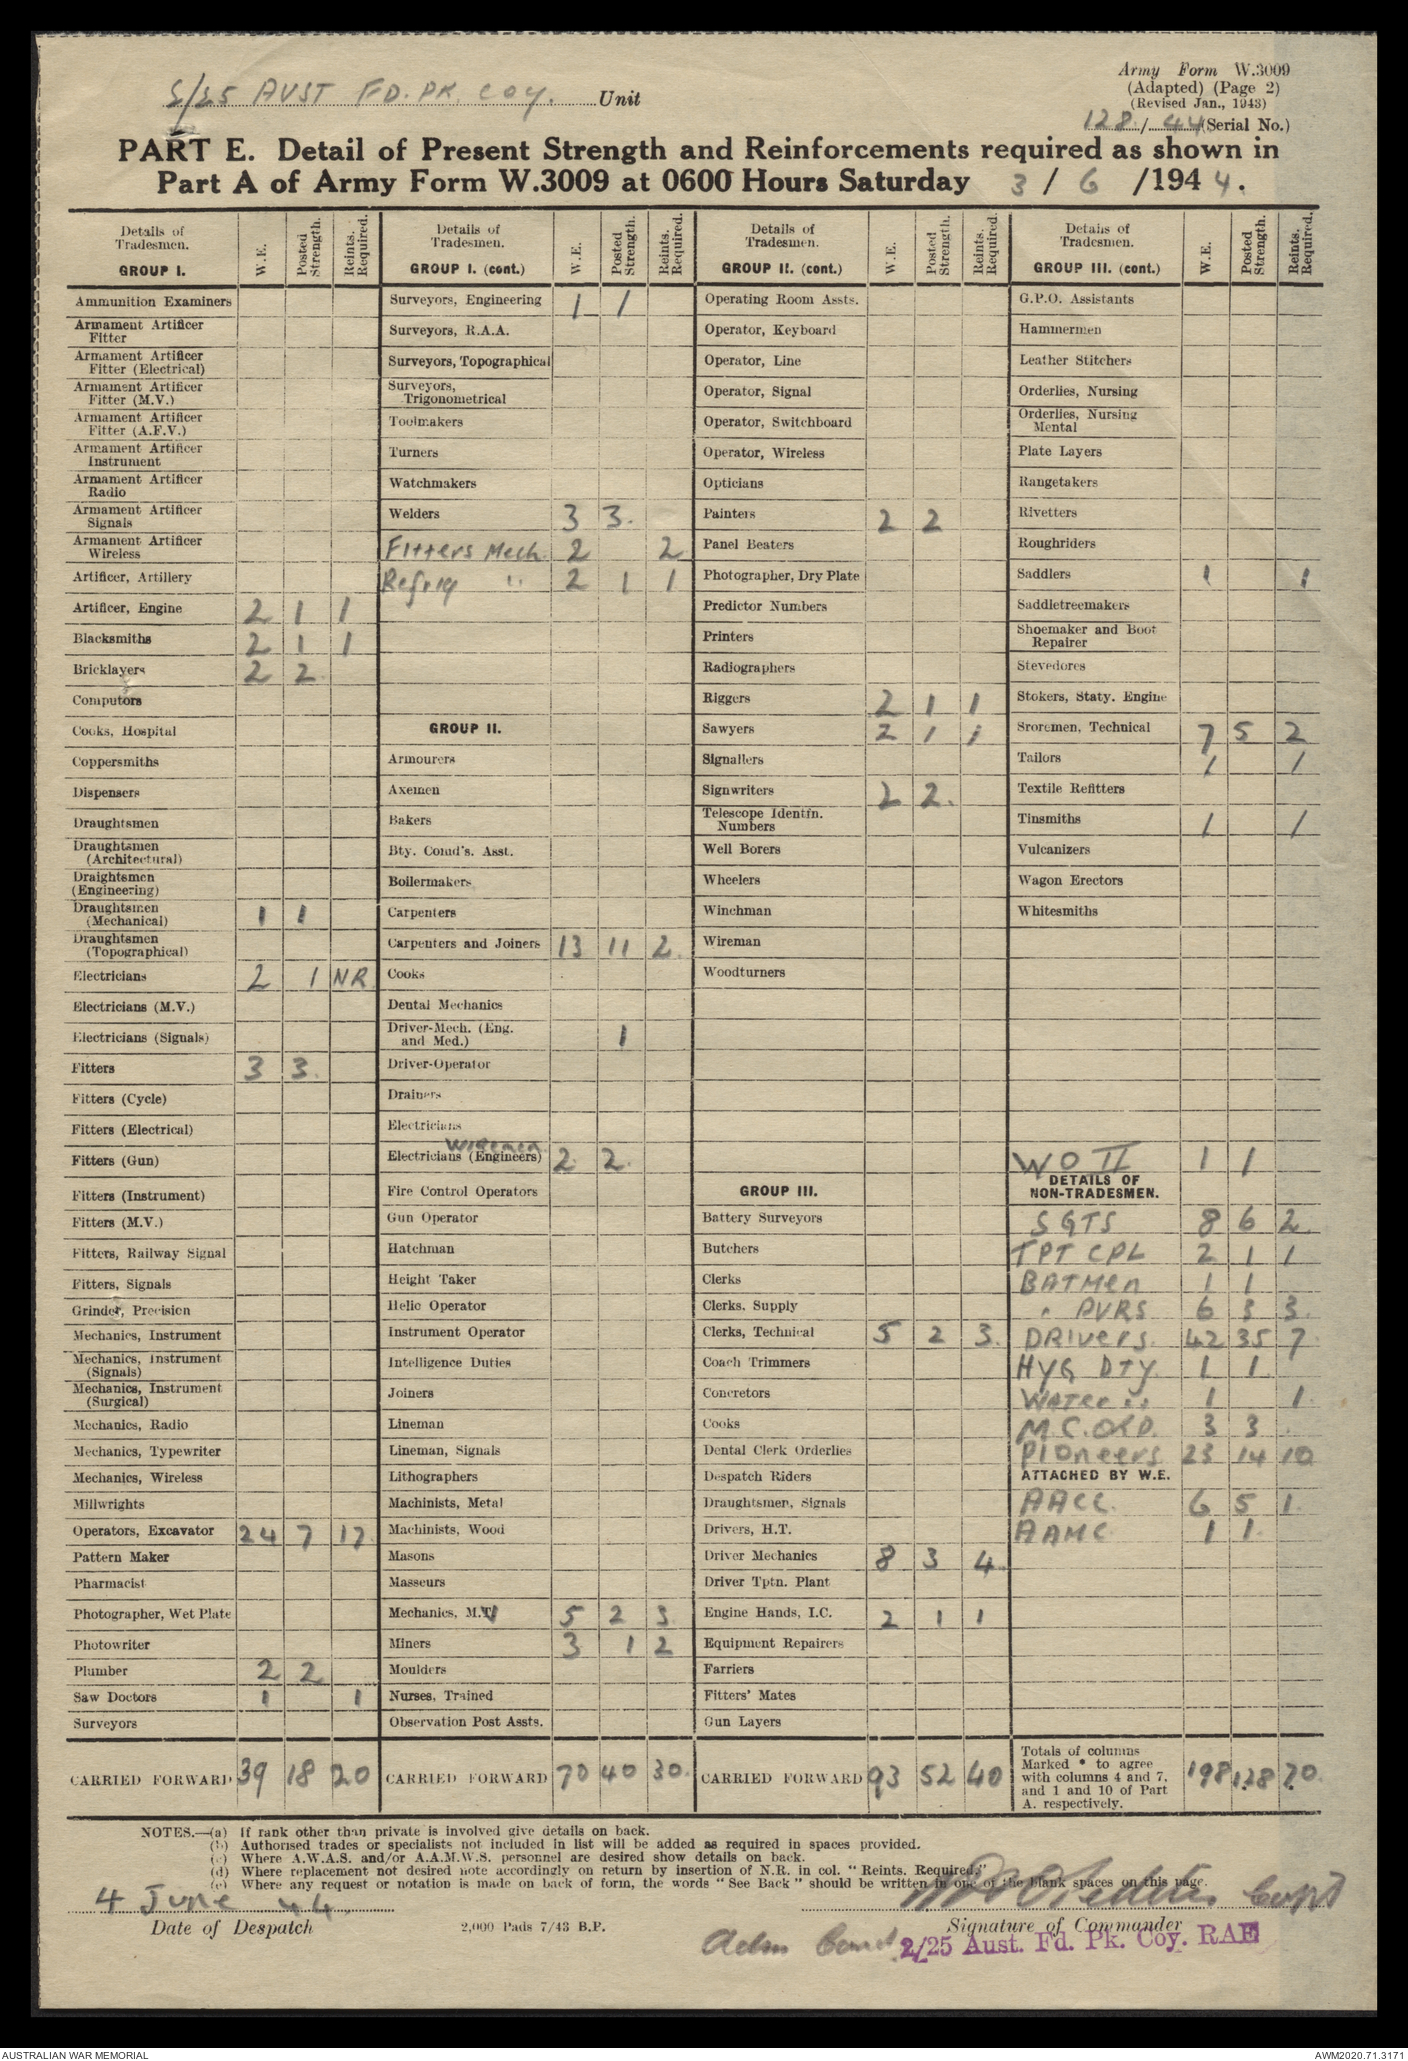 2/25 AUST FD. PK. COY. Unit
Army Form W.3009
(Adapted) (Page 2)
(Revised Jan., 1943)
128/44 (Serial No.)
PART E. Detail of Present Strength and Reinforcements required as shown in
Part A of Army Form W.3009 at 0600 Hours Saturday 3 / 6 /1944.
Details of Tradesmen. GROUP I. W.E. Posted Strength. Reints. Required.
Ammunition Examiners
Armament Artificer Fitter
Armament Artificer Fitter (Electrical)
Armament Artificer Fitter (M.V.)
Armament Artificer Fitter (A.F.V.)
Armament Artificer Instrument
Armament Artificer Radio
Armament Artificer Signals
Armament Artificer Wireless
Artificer, Artillery
Artificer, Engine 2 1 1
Blacksmiths 2 1 1
Bricklayers 2 2
Computors
Cooks, Hospital
Coppersmiths
Dispensers
Draughtsmen
Draughtsmen (Architectural)
Draightsmen (Engineering)
Draughtsmen (Mechanical) 1 1
Draughtsmen (Topographical)
Electricians 2 1 NR
Electricians (M.V.)
Electricians (Signals)
Fitters 3 3.
Fitters (Cycle)
Fitters (Electrical)
Fitters (Gun)
Fitters (Instrument)
Fitters (M.V.)
Fitters, Railway Signal
Fitters, Signals
Grinder, Precision
Mechanics, Instrument
Mechanics, Instrument (Signals)
Mechanics, Instrument (Surgical)
Mechanics, Radio
Mechanics, Typewriter
Mechanics, Wireless
Millwrights
Operators, Excavator 24 7 17.
Pattern Maker
Pharmacist
Photographer, Wet Plate
Photowriter
Plumber 2 2
Saw Doctors 1 1
Surveyors
CARRIED FORWARD 39 18 20
Details of Tradesmen. GROUP I. (cont.) W.E. Posted Strength. Reints. Required.
Surveyors, Engineering 1 1
Surveyors, R.A.A.
Surveyors, Topographical
Surveyors, Trigonometrical
Toolmakers
Turners
Watchmakers
Welders 3 3.
Fitters Mech. 2 2
Refrig " 2 1 1
GROUP II.
Armourers
Axemen
Bakers
Bty. Comd's. Asst.
Boilermakers
Carpenters
Carpenters and Joiners 13 11 2.
Cooks
Dental Mechanics
Driver-Mech. (Eng. and Med.) 1
Driver-Operator
Drainers
Electricians
Wiremen
Electricians (Engineers) 2. 2.
Fire Control Operators
Gun Operator
Hatchman
Height Taker
Helio Operator
Instrument Operator
Intelligence Duties
Joiners
Lineman
Lineman, Signals
Lithographers
Machinists, Metal
Machinists, Wood
Masons
Masseurs
Mechanics, M.V 5 2 3.
Miners 3 1 2
Moulders
Nurses, Trained
Observation Post Assts.
CARRIED FORWARD 70 40 30.
Details of Tradesmen. GROUP II. (cont.) W.E. Posted Strength. Reints. Required.
Operating Room Assts.
Operator, Keyboard
Operator, Line
Operator, Signal
Operator, Switchboard
Operator, Wireless
Opticians
Painters 2 2
Panel Beaters
Photographer, Dry Plate
Predictor Numbers
Printers
Radiographers
Riggers 2 1 1
Sawyers 2 1 1
Signallers
Signwriters 2 2.
Telescope Identfn. Numbers
Well Borers
Wheelers
Winchman
Wireman
Woodturners
GROUP III.
Battery Surveyors
Butchers
Clerks
Clerks, Supply
Clerks, Technical 5 2 3.
Coach Trimmers
Concretors
Cooks
Dental Clerk Orderlies
Despatch Riders
Draughtsmen, Signals
Drivers, H.T.
Driver Mechanics 8 3 4.
Driver Tptn. Plant
Engine Hands, I.C. 2 1 1
Equipment Repairers
Farriers
Fitters' Mates
Gun Layers
CARRIED FORWARD 93 52 40
Details of Tradesmen. GROUP III. (cont.) W.E. Posted Strength. Reints. Required.
G.P.O. Assistants
Hammermen
Leather Stitchers
Orderlies, Nursing
Orderlies, Nursing Mental
Plate Layers
Rangetakers
Rivetters
Roughriders
Saddlers 1 1
Saddletreemakers
Shoemaker and Boot Repairer
Stevedores
Stokers, Staty. Engine
Sroremen, Technical 7 5 2
Tailors 1 1
Textile Refitters
Tinsmiths 1 1
Vulcanizers
Wagon Erectors
Whitesmiths
WO II 1 1
DETAILS OF NON-TRADESMEN.
SGTS 8 6 2.
TPT CPL 2 1 1
BATMEN 1 1
" DVRS 6 3 3.
DRIVERS. 42 35 7
HYG DTY. 1 1.
WATER " 1 1.
M.C. ORD. 3 3
PIONEERS 23 14 10
ATTACHED BY W.E.
AACC. 6 5 1.
AAMC 1 1.
Totals of columns Marked * to agree with columns 4 and 7, and 1 and 10 of Part A. respectively. 198 128 70.
NOTES.—(a) If rank other than private is involved give details on back.
(b) Authorised trades or specialists not included in list will be added as required in spaces provided.
(c) Where A.W.A.S. and/or A.A.M.W.S. personnel are desired show details on back.
(d) Where replacement not desired note accordingly on return by insertion of N.R. in col. "Reints. Required."
(e) Where any request or notation is made on back of form, the words "See Back" should be written in one of the blank spaces on this page.
4 June 44.
Capt
Date of Despatch
2,000 Pads 7/43 B.P.
Signature of Commander
Adm Comd 2/25 Aust. Fd. Pk. Coy. RAE
AUSTRALIAN WAR MEMORIAL
AWM2020.71.3171